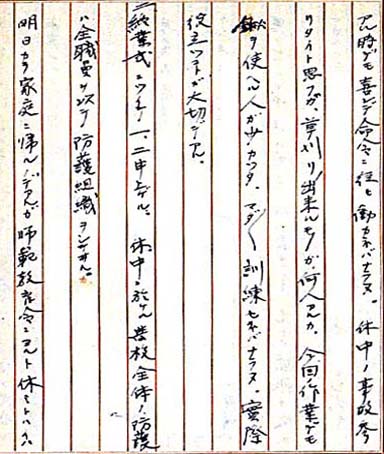 アル時デモ喜ンデ命令ニ従ヒ働カネバナラヌ。休中ノ事故
リタイト思フガ、草刈リノ出来ルモノガ何人アルカ。今回ノ作業デモ
鍬ヲ使ヘル人ガ少カッタ。マダ〱訓練セネバナラヌ。実際
役立ツコトガ大切デアル。
二、終業式ニツキ一、二申上ゲル。休中ニ於ケル本校全体ノ防護
ハ全職員ヲ以テ防護組織
明日カラ家庭ニ帰ルノデアルガ師範教育令ニヨルト休ミトハ